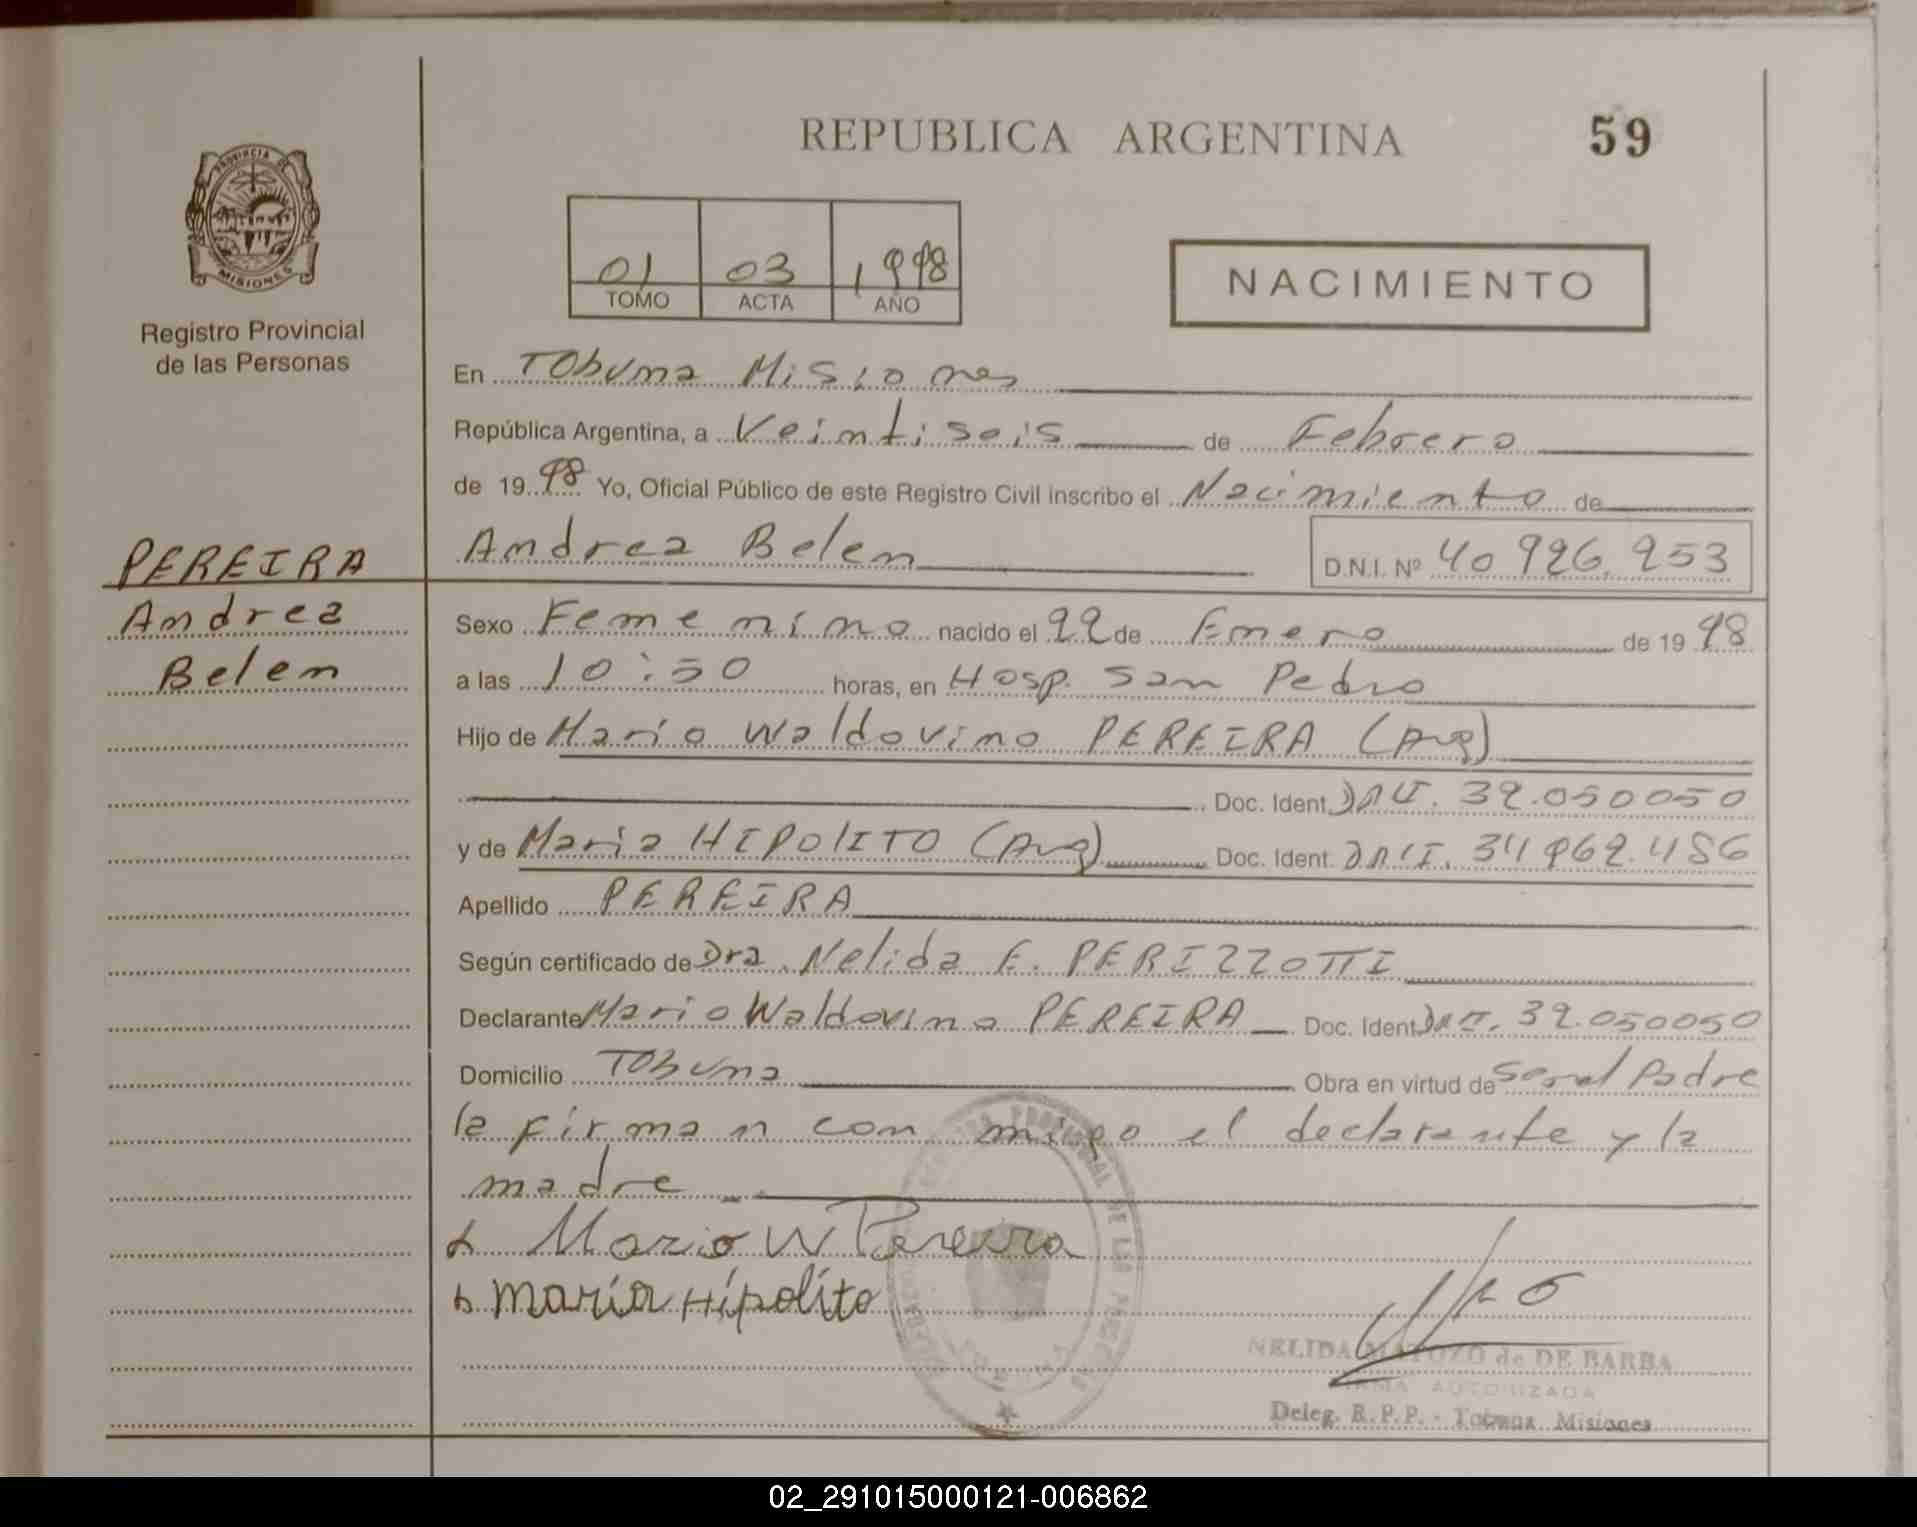 REPUBLICA ARGENTINA
59
PROVINCIA DE
MISIONES
Registro Provincial
de las Personas
01 03 1998
TOMO ACTA AÑO
NACIMIENTO
En Tobuna Misiones
República Argentina, a Veintiseis de Febrero
de 1998 Yo, Oficial Público de este Registro Civil inscribo el Nacimiento de
PEREIRA
Andrea
Belen
Andrea Belen D.N.I. Nº 40 926.253
Sexo Femenino nacido el 22 de Enero de 1998
a las 10:50 horas, en Hosp. San Pedro
Hijo de Mario Waldovino PEREIRA (Arg)
Doc. Ident. DNI. 32.050050
y de Maria HIPOLITO (Arg) Doc. Ident. DNI. 34962.486
Apellido PEREIRA
Según certificado de Dra. Nelida E. PERIZZOTTI
Declarante Mario Waldovino PEREIRA Doc. Ident DNI. 32.050050
Domicilio Tobuna Obra en virtud de Ser el Padre
la firman con migo el declarante y la
madre
Mario W Pereira
Maria Hipolito
NELIDA MATOZO de DE BARBA
FIRMA AUTORIZADA
Deleg. R.P.P. - Tobuna Misiones
02_291015000121-006862